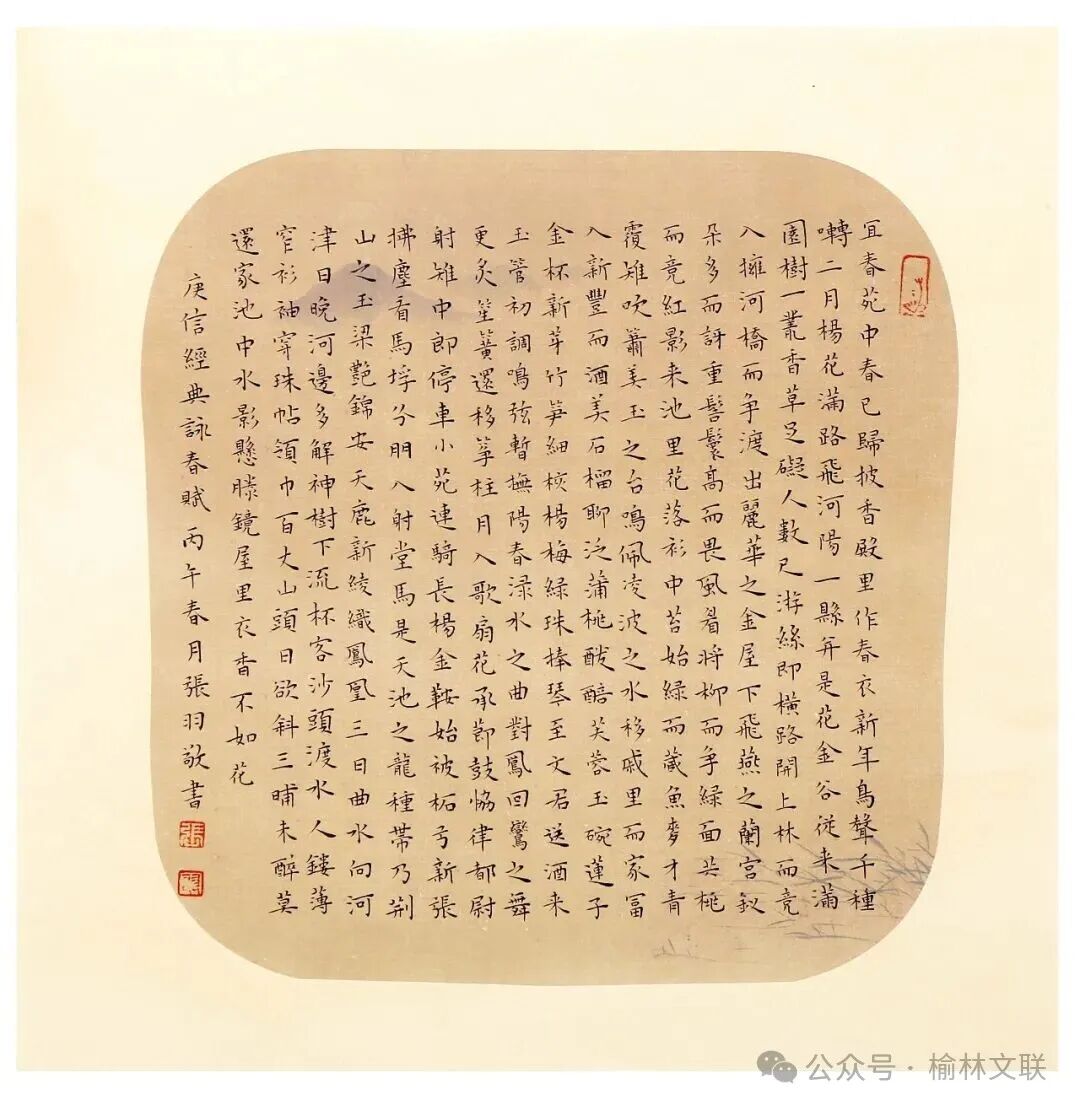 宜春苑中春已歸披香殿里作春衣新年鳥聲千種
囀二月楊花滿路飛河陽一縣并是花金谷從来滿
園樹一叢香草足礙人數尺游絲即橫路開上林而竞
入擁河橋而争渡出麗華之金屋下飛燕之蘭宮釵
朵多而訝重髻鬟髙而畏風眉将柳而争綠面共桃
而竞紅影来池里花落衫中苔始綠而藏魚麥才青
覆雉吹簫美玉之台鳴佩凌波之水移戚里而家冨
入新豐而酒美石榴聊泛蒲桃醱醅芙蓉玉碗蓮子
金杯新芽竹笋細核楊梅緑珠捧琴至文君送酒来
玉管初調鳴弦暫撫陽春渌水之曲對鳳回鸞之舞
更炙笙簧還移筝柱月入歌扇花承節鼓恊律都尉
射雉中郎停車小苑連騎長楊金鞍始被柘弓新張
拂塵看馬埒分朋入射堂馬是天池之龍種帶乃荆
山之玉梁艷錦安天鹿新綾織鳳凰三日曲水向河
津日晚河邊多解神樹下流杯客沙頭渡水人鏤薄
窄衫袖穿珠帖領巾百丈山頭日欲斜三晡未醉莫
還家池中水影懸勝鏡屋里衣香不如花
庾信經典詠春賦丙午春月張羽敬書
張
羽
公众号·榆林文联